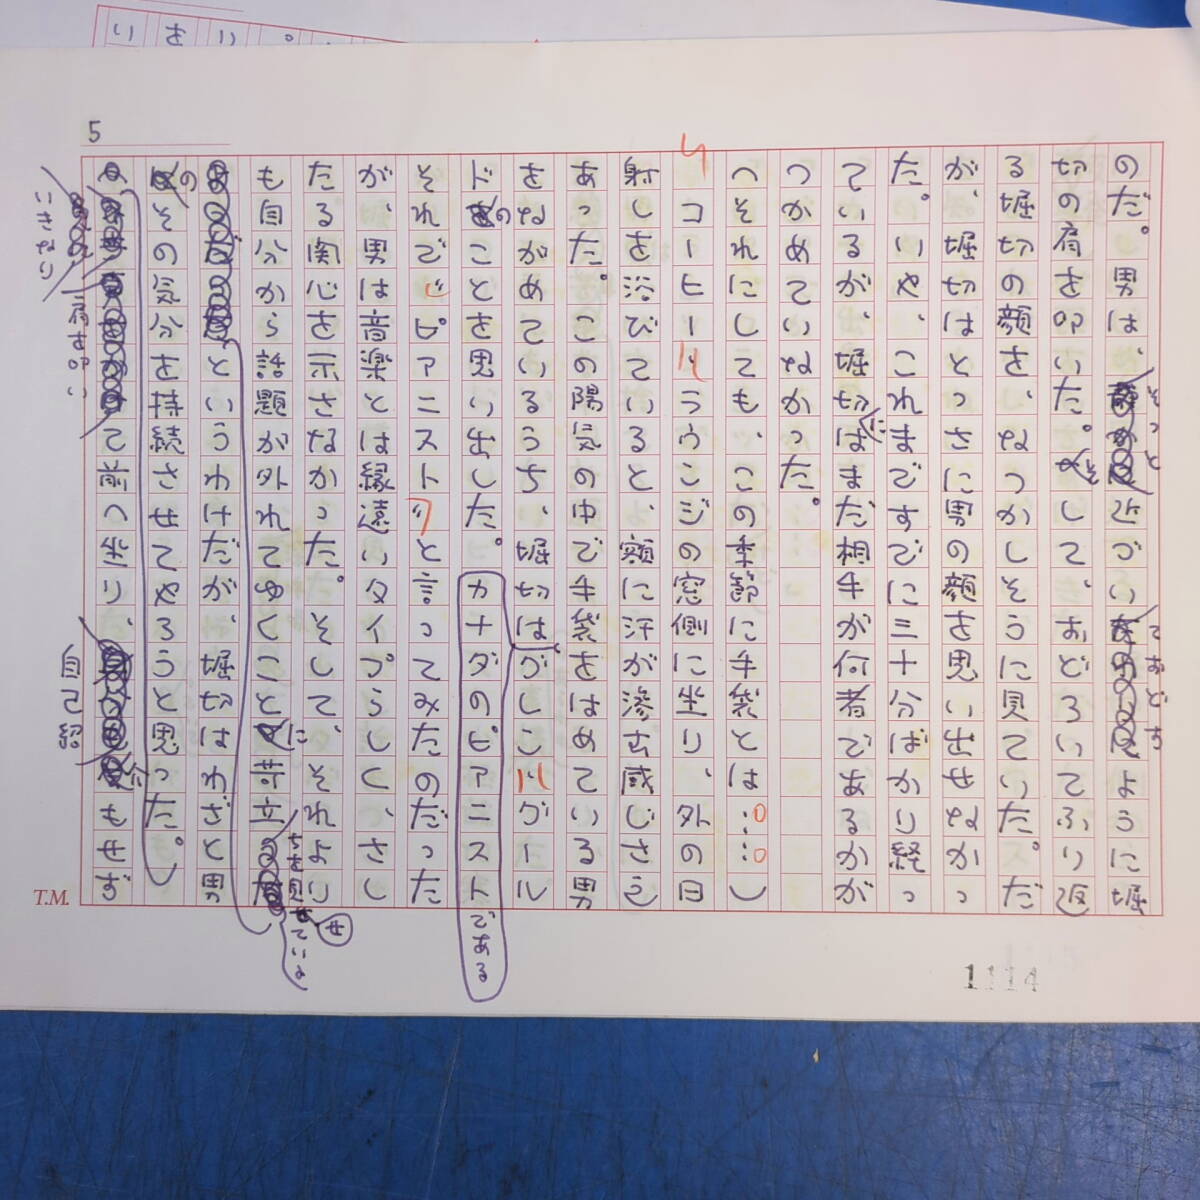 5
のだ。男は、そっと近づいておどすように堀
切の肩を叩いた。そして、おどろいてふり返
る堀切の顔を、なつかしそうに見ていた。だ
が、堀切はとっさに男の顔を思い出せなかっ
た。いや、これまですでに三十分ばかり経っ
ているが、堀切にはまだ相手が何者であるかが
つかめていなかった。
へそれにしても、この季節に手袋とは……し
コーヒーをうこじの窓側に坐り、外の日
射しを浴びていると、額に汗が滲む感じさえ
あった。この陽気の中で手袋をはめている男
をながめているうち、堀切はグレン・グール
ドのことを思い出した。カナダのピアニストである
それでピアニスト?と言ってみたのだった
が、男は音楽とは縁遠いタイプらしく、さし
たる関心を示さなかった。そして、それより
も自分から話題が外れてゆくことに苛立ちを見せている
というわけだが、堀切はわざと男
のその気分を持続させてやろうと思った。
いきなり肩を叩い
て前へ坐り、自己紹介もせず
T.M.
1114